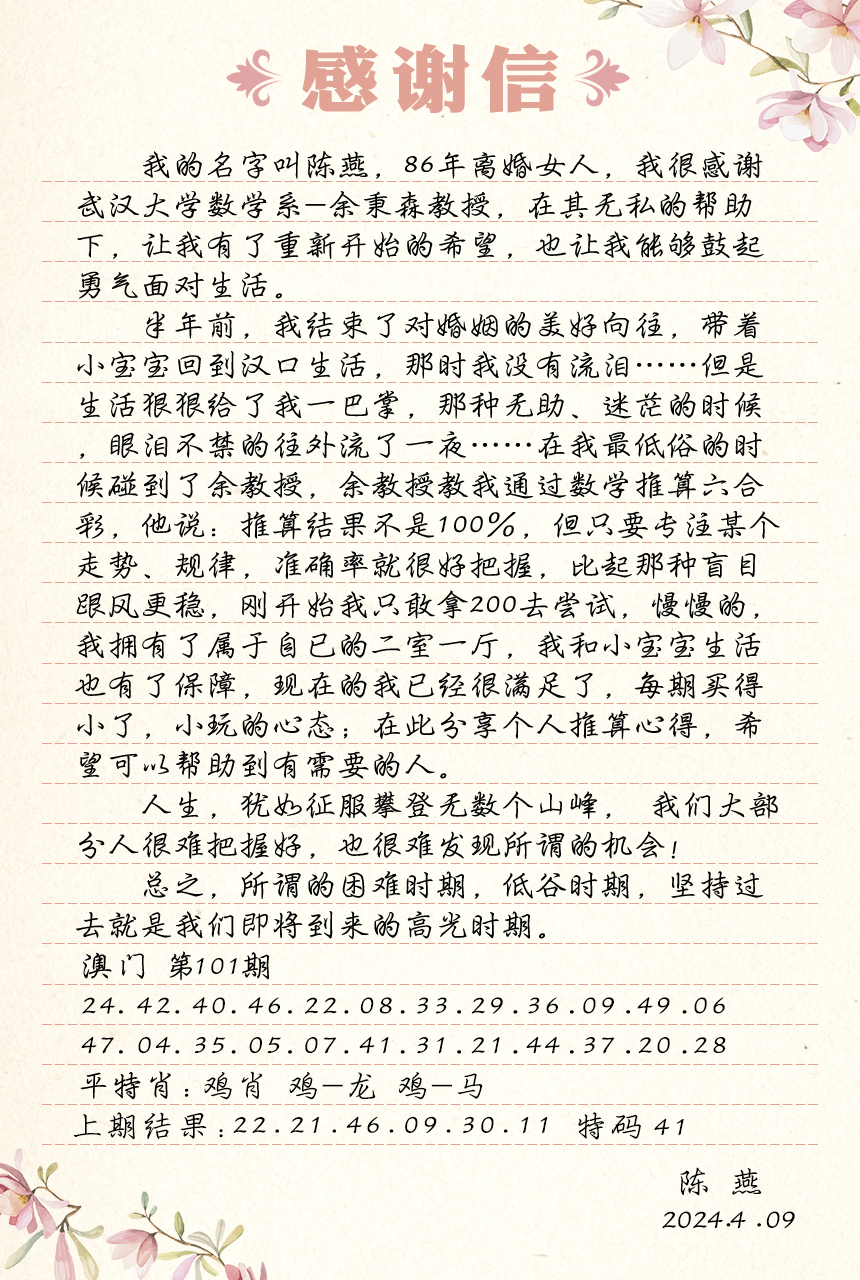 感谢信
我的名字叫陈燕，86年离婚女人，我很感谢
武汉大学数学系—余秉森教授，在其无私的帮助
下，让我有了重新开始的希望，也让我能够鼓起
勇气面对生活。
半年前，我结束了对婚姻的美好向往，带着
小宝宝回到汉口生活，那时我没有流泪……但是
生活狠狠给了我一巴掌，那种无助、迷茫的时候
，眼泪不禁的往外流了一夜……在我最低俗的时
候碰到了余教授，余教授教我通过数学推算六合
彩，他说：推算结果不是100%，但只要专注某个
走势、规律，准确率就很好把握，比起那种盲目
跟风更稳，刚开始我只敢拿200去尝试，慢慢的，
我拥有了属于自已的二室一厅，我和小宝宝生活
也有了保障，现在的我已经很满足了，每期买得
小了，小玩的心态；在此分享个人推算心得，希
望可以帮助到有需要的人。
人生，犹如征服攀登无数个山峰， 我们大部
分人很难把握好，也很难发现所谓的机会！
总之，所谓的困难时期，低谷时期，坚持过
去就是我们即将到来的高光时期。
澳门 第101期
24.42.40.46.22.08.33.29.36.09.49.06
47.04.35.05.07.41.31.21.44.37.20.28
平特肖：鸡肖 鸡—龙 鸡—马
上期结果：22.21.46.09.30.11 特码 41
陈 燕
2024.4.09